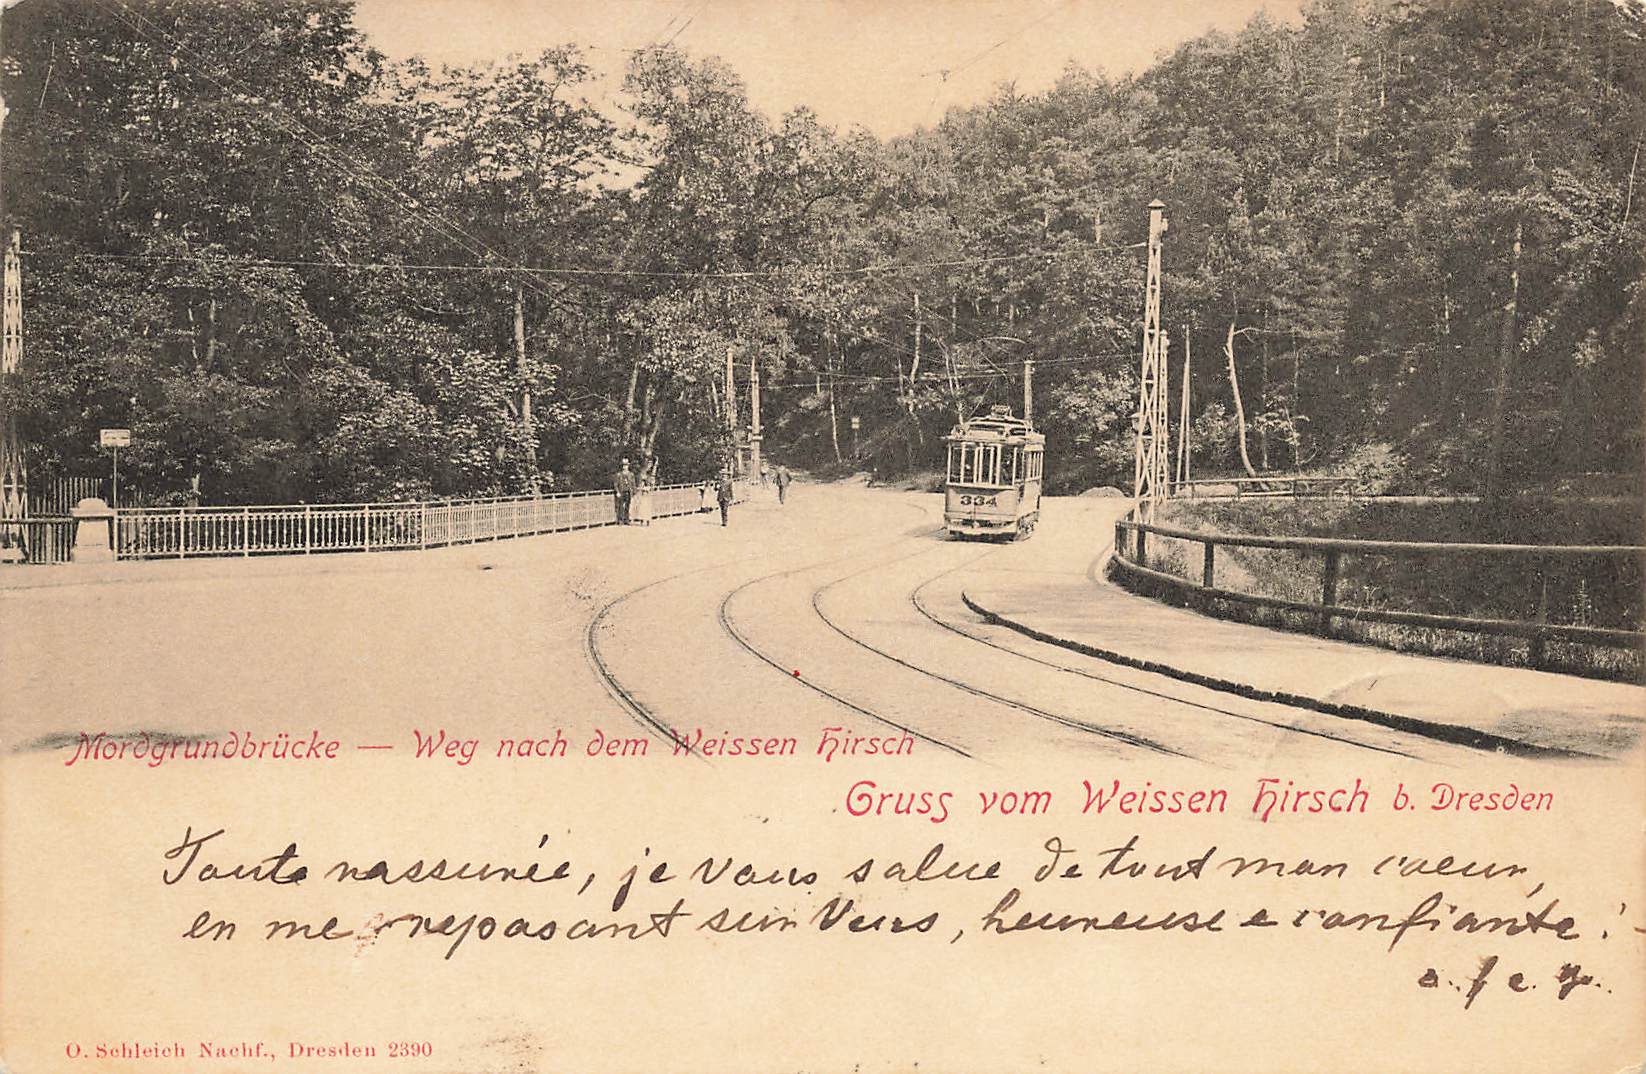 334
Mordgrundbrücke — Weg nach dem Weissen Hirsch
Gruss vom Weissen Hirsch b. Dresden
Toute rassurée, je vous salue de tout mon cœur,
en me reposant sur Vous, heureuse e confiante!
O. Schleich Nachf., Dresden 2390